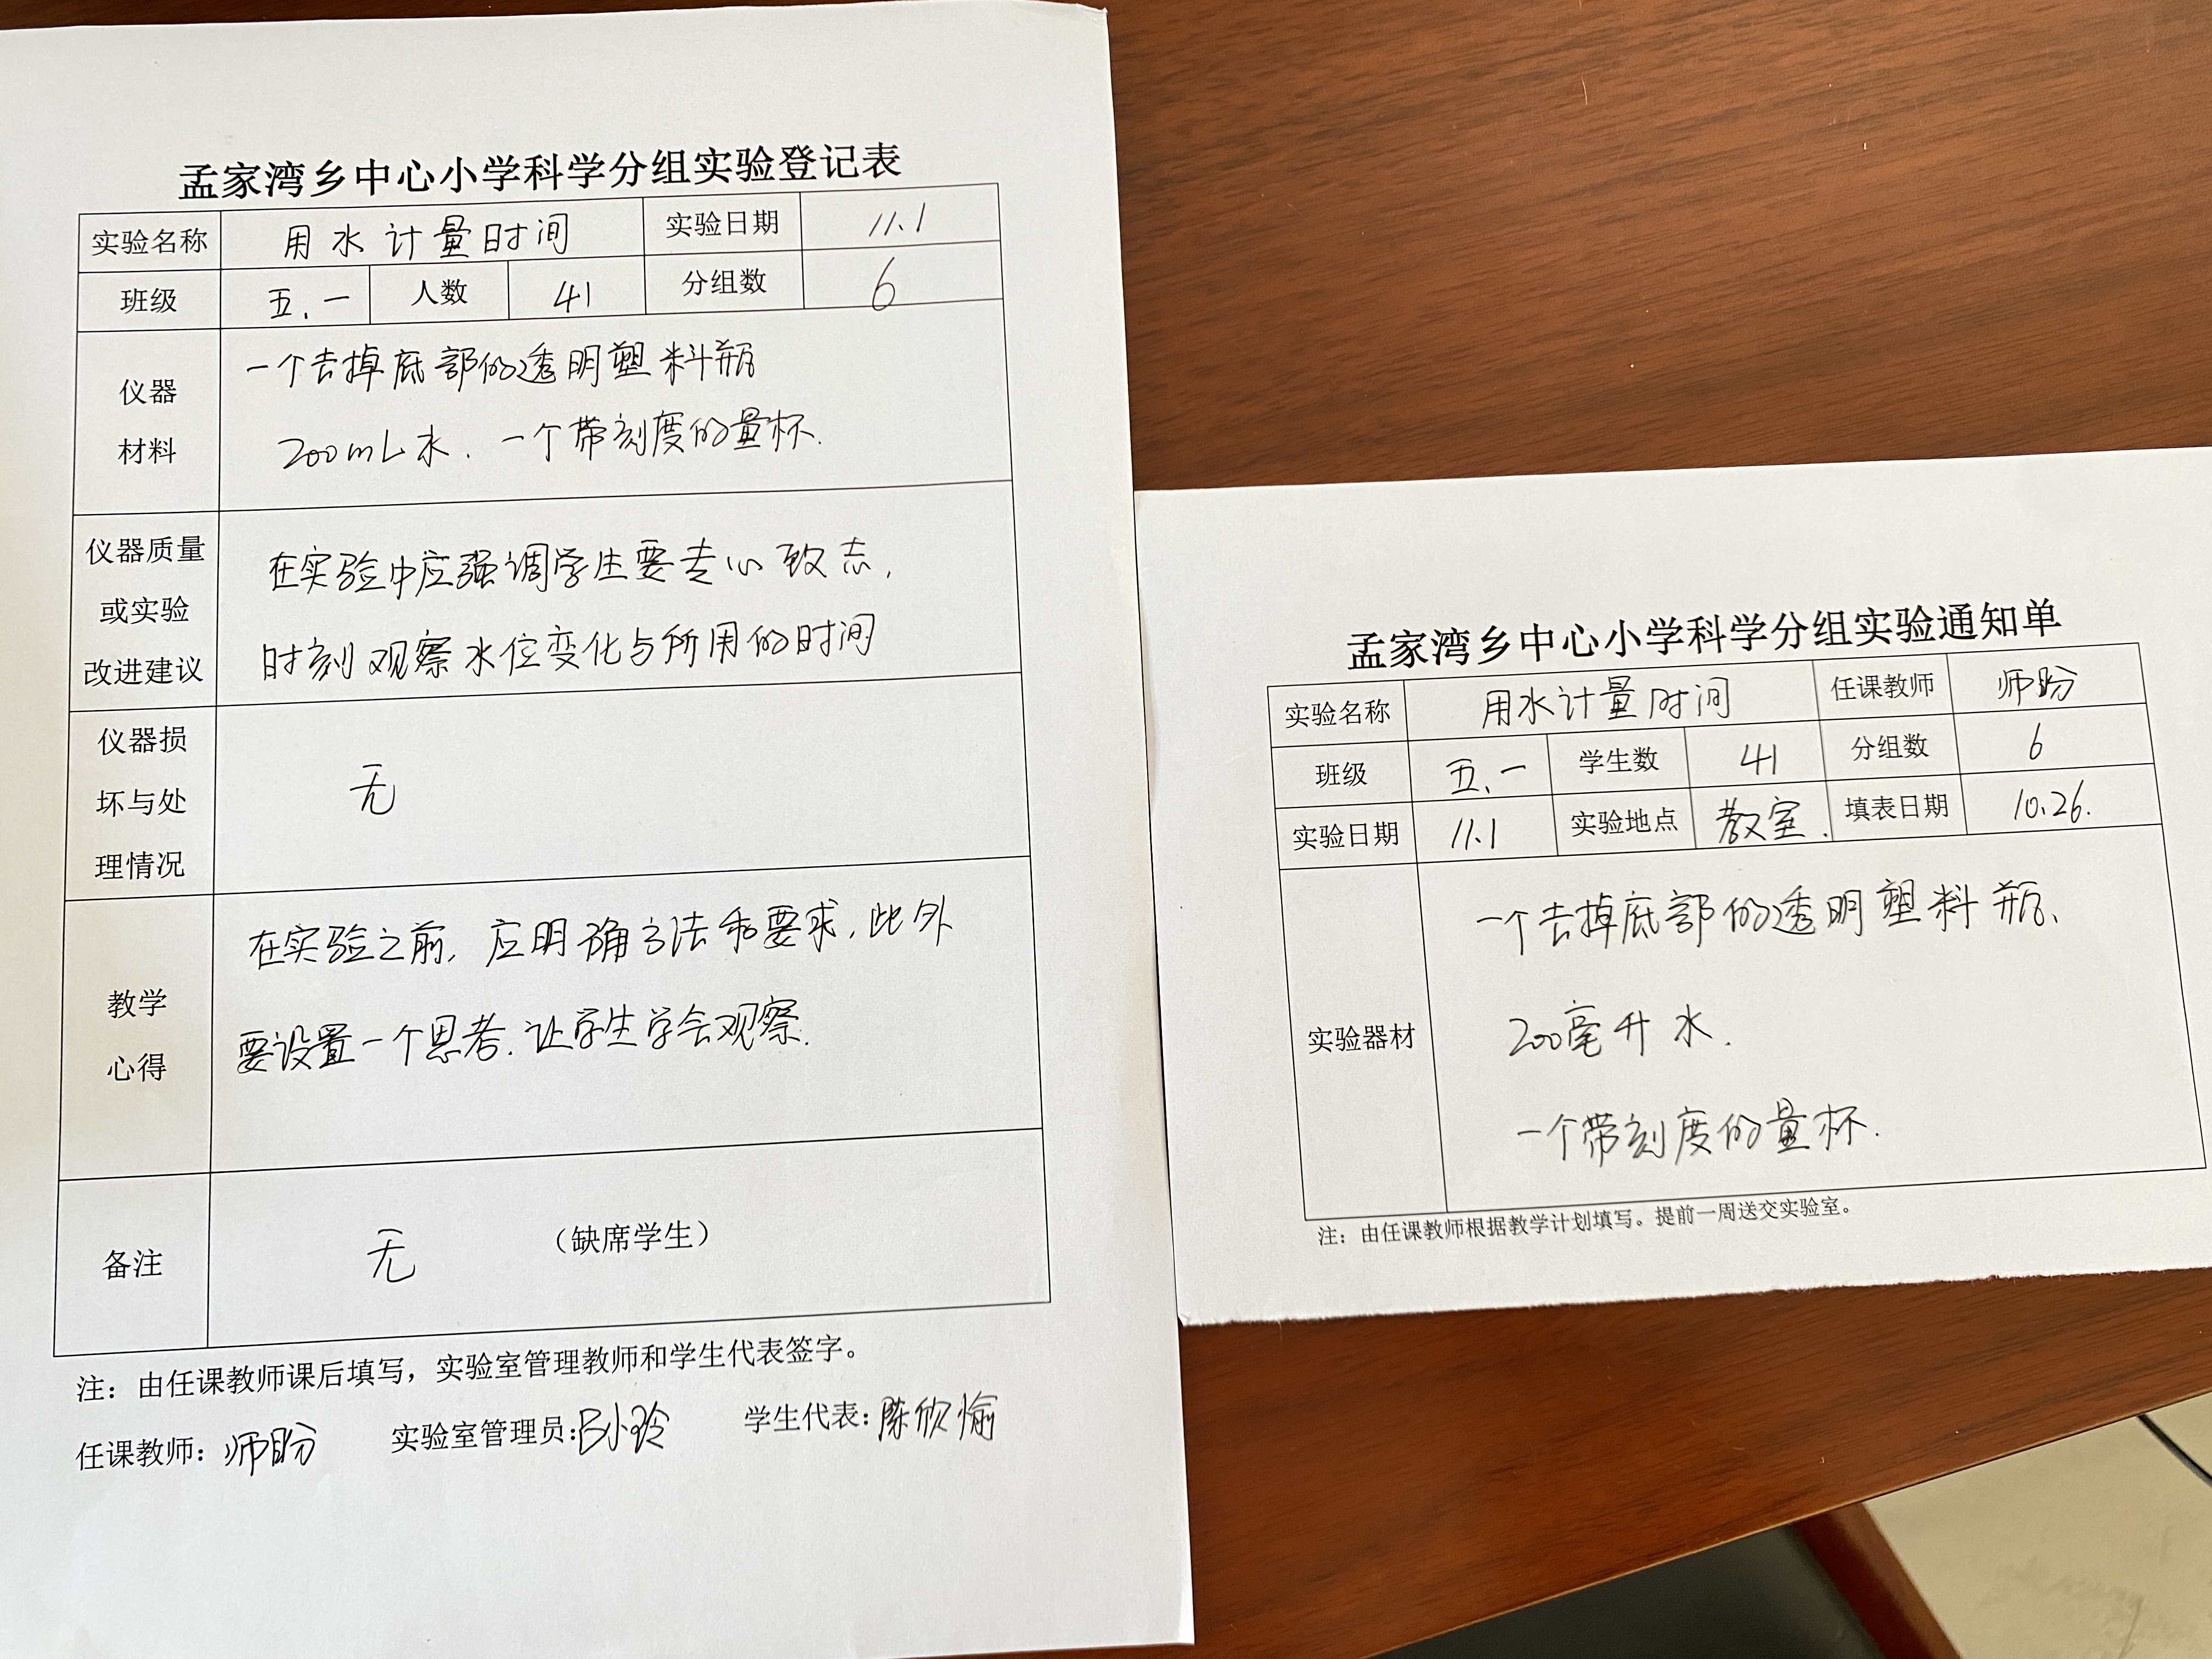 孟家湾乡中心小学科学分组实验登记表
实验名称 用水计量时间 实验日期 11.1
班级 五.一 人数 41 分组数 6
仪器
材料
一个去掉底部的透明塑料瓶
200mL水. 一个带刻度的量杯.
仪器质量
或实验
改进建议
在实验中应强调学生要专心致志,
时刻观察水位变化与所用的时间
仪器损
坏与处
理情况
无
教学
心得
在实验之前, 应明确方法和要求, 此外
要设置一个思考. 让学生学会观察.
备注
无 （缺席学生）
注：由任课教师课后填写，实验室管理教师和学生代表签字。
任课教师：师盼 实验室管理员: 小玲 学生代表：陈欣愉
孟家湾乡中心小学科学分组实验通知单
实验名称 用水计量时间 任课教师 师盼
班级 五.一 学生数 41 分组数 6
实验日期 11.1 实验地点 教室. 填表日期 10.26.
实验器材
一个去掉底部的透明塑料瓶、
200毫升水.
一个带刻度的量杯.
注：由任课教师根据教学计划填写。提前一周送交实验室。